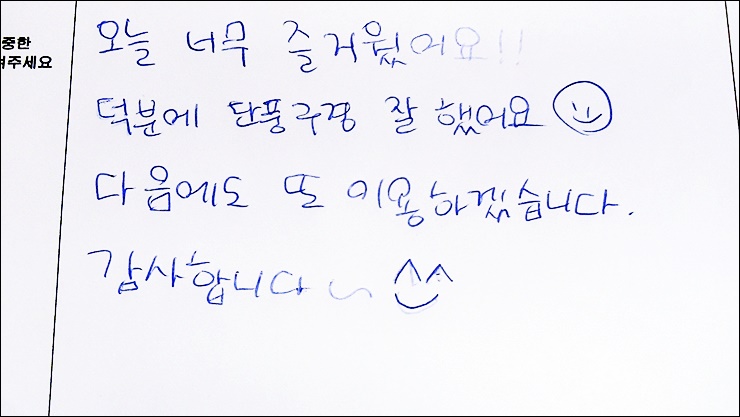 중한
주세요
오늘 너무 즐거웠어요!!
덕분에 단풍구경 잘 했어요
다음에도 또 이용하겠습니다.
감사합니다~ ^^